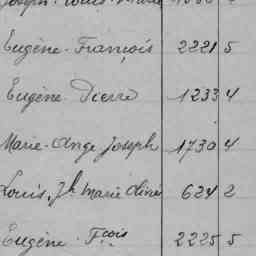 Joseph-Louis-Marie
Eugène-François 2221 5
Eugène Pierre 1233 4
Marie-Ange Joseph 1730 4
Louis, Jh Marie 624 2
Eugène Fçois 2225 5